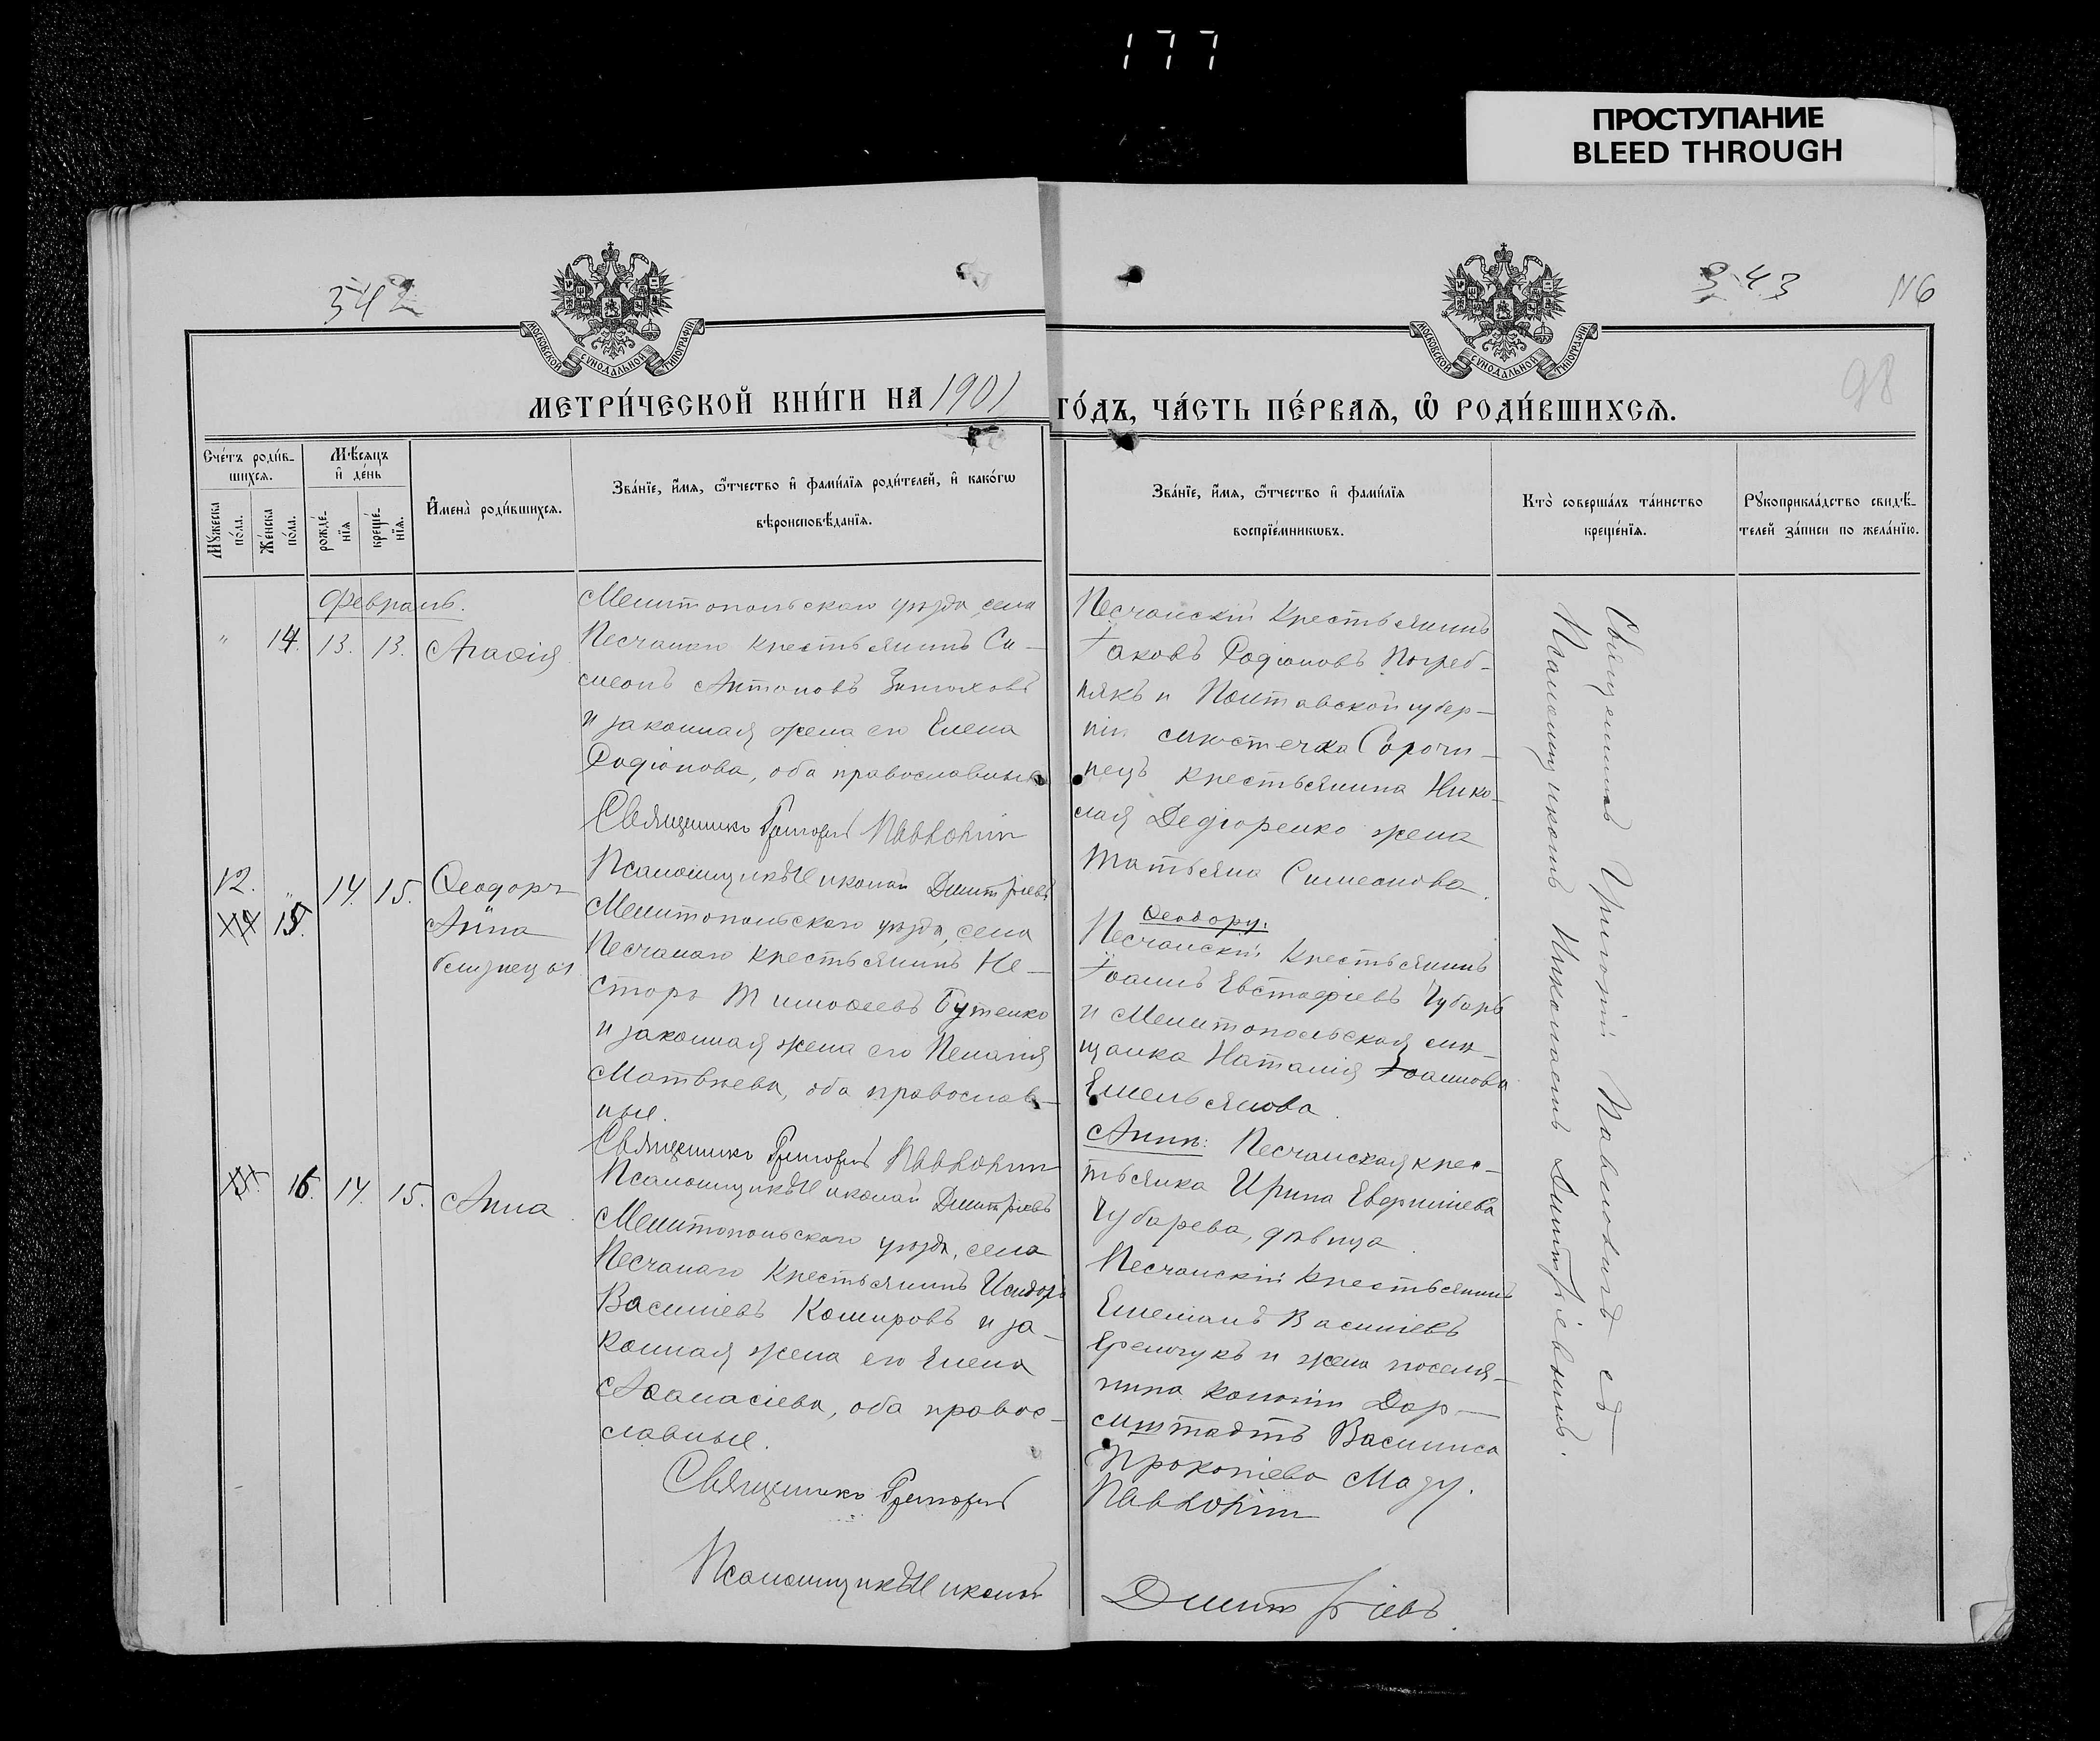 177
ПРОСТУПАНИЕ
BLEED THROUGH
342
343
116
98
МОСКОВСКОЙ СѴНОДАЛЬНОЙ ТИПОГРАФІИ
МОСКОВСКОЙ СѴНОДАЛЬНОЙ ТИПОГРАФІИ
МЕТРИ́ЧЕСКОЙ КНИ́ГИ НА 1901 ГО́ДЪ, ЧА́СТЬ ПЕ́РВАѦ, Ѡ҆ РОДИ́ВШИХСѦ.
Сче́тъ роди́в-
шихсѧ.
Мꙋ́жеска
по́ла.
Же́нска
по́ла.
Мѣ́сѧцъ
и҆ де́нь
рожде́-
нїѧ
креще́-
нїѧ.
И҆мена̀ роди́вшихсѧ.
Зва́нїе, и҆́мѧ, ѻ҆́тчество и҆ фами́лїѧ роди́телей, и҆ како́гѡ
вѣроисповѣ́данїѧ.
Зва́нїе, и҆́мѧ, ѻ҆́тчество и҆ фами́лїѧ
воспрїе́мникѡвъ.
Кто̀ соверша́лъ та́инство
креще́нїѧ.
Рꙋкоприкла́дство свидѣ́-
телей за́писи по жела́нїю.
Февраль.
" 14. 13. 13. Агафія
Мелитопольскаго уѣзда, села
Песчанаго крестьянинъ Си-
меонъ Антоновъ
и законная жена его Елена
Родіонова, оба православные
Священникъ Григорій Павловичъ
Псаломщикъ Николай Димитріевъ
Песчанскій крестьянинъ
Іаковъ Родіоновъ Погреб-
някъ и Полтавской губер-
ніи мѣстечка Сорочи-
нецъ крестьянина Нико-
лая Дедюренко жена
Татьяна Симеонова.
12. " 14. 15. Ѳеодоръ
15. Анна
близнецы
Мелитопольскаго уѣзда, села
Песчанаго крестьянинъ Не-
сторъ Тимоѳеевъ Бутенко
и законная жена его Пелагія
Матвѣева, оба православ-
ные.
Священникъ Григорій Павловичъ
Псаломщикъ Николай Димитріевъ
Ѳеодору:
Песчанскій крестьянинъ
Іоаннъ Евстафіевъ Чубарь
и Мелитопольская мѣ-
щанка Наталія Іоаннова
Емельянова.
Аннѣ: Песчанская крес-
тьянка Ирина Евфиміева
Чубарева, дѣвица.
16. 14. 15. Анна
Мелитопольскаго уѣзда, села
Песчанаго крестьянинъ Исидоръ
Василіевъ Комировъ и за-
конная жена его Елена
Аѳанасіева, оба право-
славные.
Священникъ Григорій Павловичъ
Псаломщикъ Николай Димитріевъ.
Песчанскій крестьянинъ
Емеліанъ Василіевъ
Яремчукъ и жена поселя-
нина колоніи Дар-
мштадтъ Василиса
Прокопіева Мазу.
Священникъ Григорій Павловичъ съ
Псаломщикомъ Николаемъ Димитріевымъ.